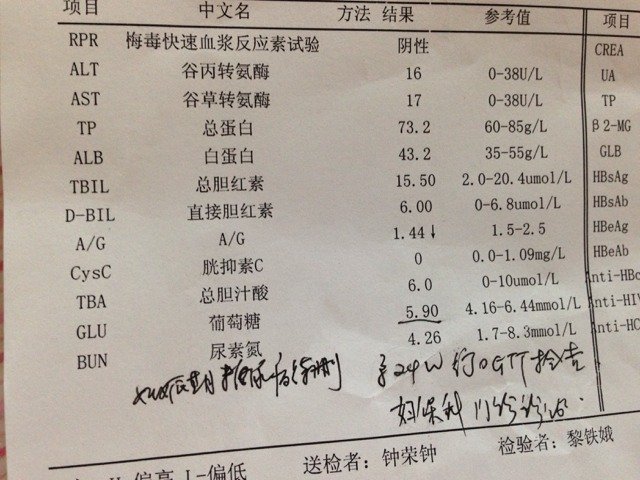 项目 中文名 方法 结果 参考值 项目
RPR 梅毒快速血浆反应素试验 阴性 CREA
ALT 谷丙转氨酶 16 0-38U/L UA
AST 谷草转氨酶 17 0-38U/L TP
TP 总蛋白 73.2 60-85g/L β2-MG
ALB 白蛋白 43.2 35-55g/L GLB
TBIL 总胆红素 15.50 2.0-20.4umol/L HBsAg
D-BIL 直接胆红素 6.00 0-6.8umol/L HBsAb
A/G A/G 1.44↓ 1.5-2.5 HBeAg
CysC 胱抑素C 0 0.0-1.09mg/L HBeAb
TBA 总胆汁酸 6.0 0-10umol/L nti-HBc
GLU 葡萄糖 5.90 4.16-6.44mmol/L nti-HI
BUN 尿素氮 4.26 1.7-8.3mmol/L nti-HC
妊娠期糖尿病待排 于24W行OGTT检查
妇保科门诊诊治.
偏高 L-偏低 送检者：钟荣钟 检验者：黎铁娥